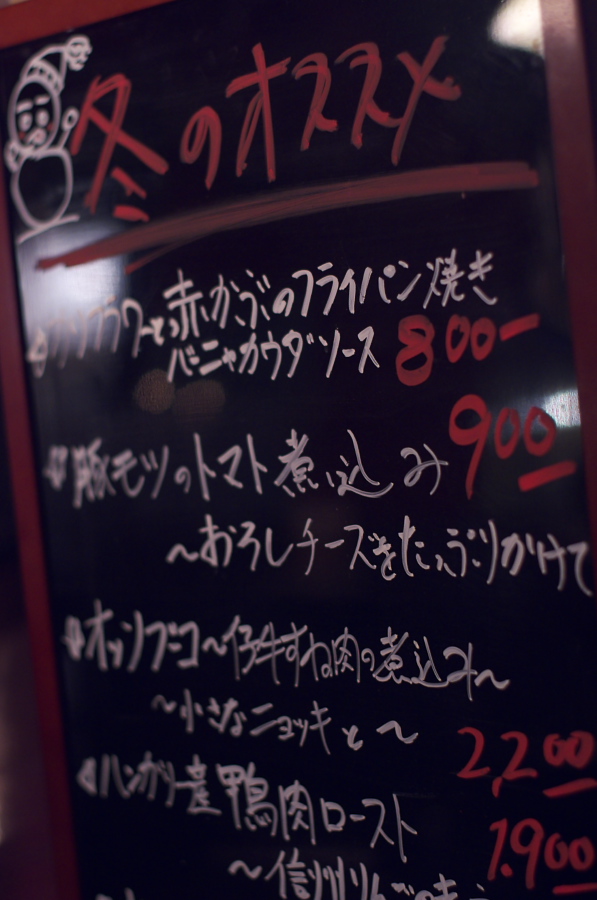 冬のオススメ
カリフラワーと赤かぶのフライパン焼き
バーニャカウダソース 800-
豚モツのトマト煮込み 900
～おろしチーズをたっぷりかけて
オッソブーコ～仔牛すね肉の煮込み～
～小さなニョッキと～ 2,200
ハンガリー産鴨肉ロースト 1.900
～信州りんごの